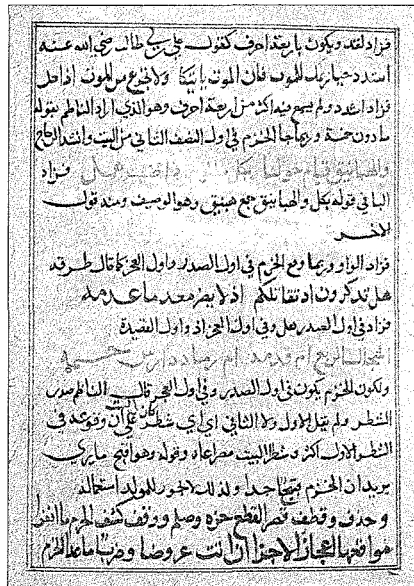 فزاد لقد ويكون باربعة احرف كقول علي بن ابي طالب رضي الله عنه
اشدد حيازيمك للموت فان الموت لاقيكا ولا تجزع من الموت اذا حل
فزاد اشدد ولم يسمع فيه اكثر من اربعة احرف وهو الذي اراد الناظم بقوله
ما دون خمسة وربما جا الخزم في اول النصف الثاني من البيت وانشد الزجاج
والهبانيق قيام حولها بكل فزاد
البا في قوله بكل والهبانيق جمع هبنيق وهو الوصيف ومنه قول
الاخر
فزاد الواو وربما وقع الخزم في اول الصدر واول العجز كما قال طرفة
هل تذكرون اذ نقاتلكم اذ لا يضر معدما عدمه
فزاد في اول الصدر هل وفي اول العجز اذ واول القصيدة
ام رماد دارس حممه
ولكون الخزم يكون في اول الصدر وفي اول العجز قال الناظم صدر
الشطر ولم يقل الاول ولا الثاني اي اي شطر كان على ان وقوعه في
الشطر الاول اكثر وشطر البيت مصراعاه وقوله وهو اقبح ما يرى
يريد ان الخزم قبيح جدا ولذلك لا يجوز للمولد استعماله
وحذف وقطف قصر القطع حذه وصلم ووقف كشف الخرم ما انفرا
مواقعها اعجاز الاجزا ان اتت عروضا وضربا ما عدا الخرم